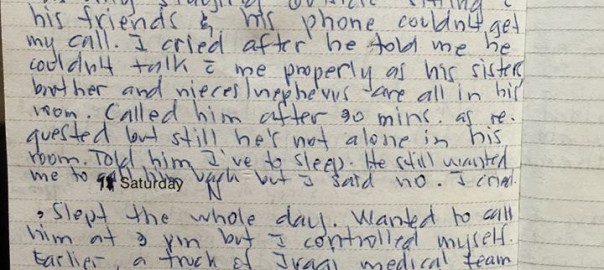 his friends & his phone couldn't get
my call. I cried after he told me he
couldn't talk c̄ me properly as his sisters,
brother and nieces/nephews are all in his
room. Called him after 30 mins. as re-
quested but still he's not alone in his
room. Told him I've to sleep. He still wanted
me to him back but I said no. I cried.
Saturday
• Slept the whole day. Wanted to call
him at 3 pm but I controlled myself.
Earlier, a truck of Iraqi medical team